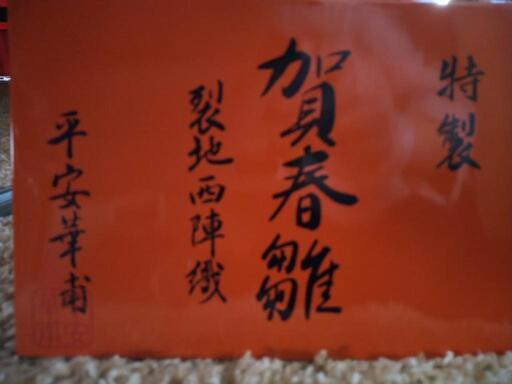 特製
賀春雛
裂地西陣織
平安華甫